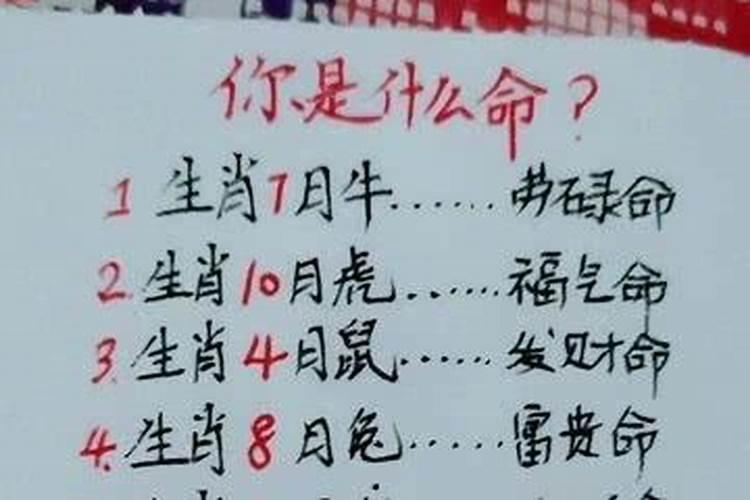 你是什么命？
1 生肖7月牛......劳碌命
2. 生肖10月虎......福气命
3. 生肖4月鼠......发财命
4. 生肖8月兔......富贵命